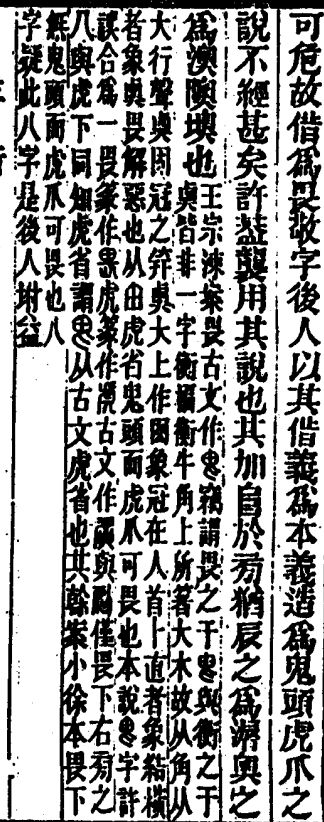 可危故偕爲畏敬字後人以其偕義爲本義造爲鬼頭虎爪之
說不經甚矣許益襲用其說也其加自於旁猶辰之爲漘奥之
爲澳隩墺也王宗涑案畏古文作㤅竊謂畏之于㤅與衡之于
奥皆非一字衡櫎衡牛角上所箸大木故从角从
大行聲奥因冠之笄奥大上作囟象冠在人首上直者象結橫
者象奥畏解惡也从甶虎省鬼頭而虎爪可畏也本說㤅字許
誤合爲一畏篆作 虎篆作 古文作 與 僅畏下右旁之
八與虎下同知虎省謂㤅从古文虎省也其餘案小徐本畏下
無鬼頭而虎爪可畏也八
字疑此八字是後人坿益